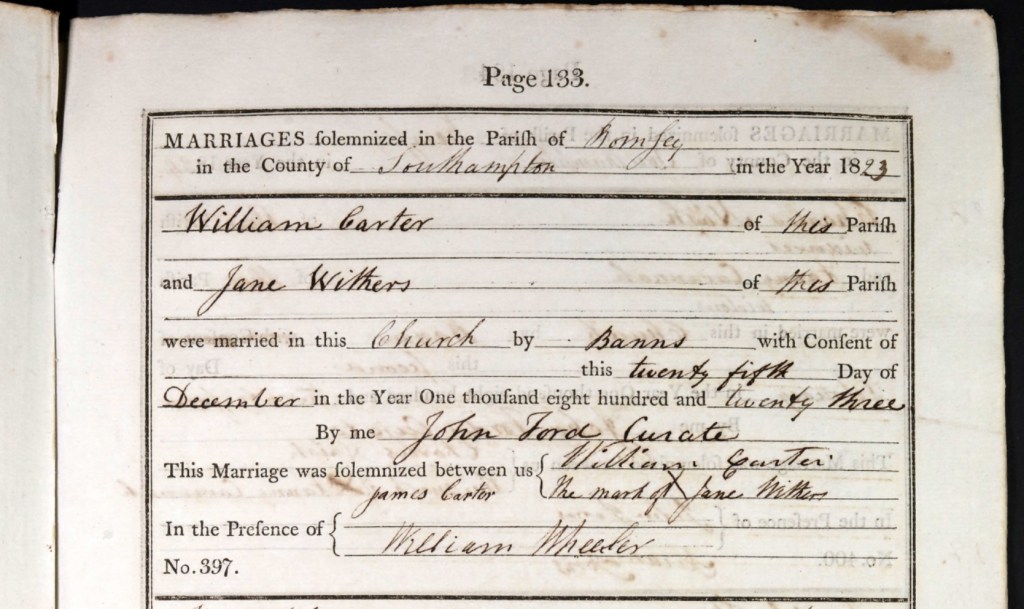 Page 133.
MARRIAGES ſolemnized in the Pariſh of Romſey
in the County of Southampton in the Year 1823
William Carter of this Pariſh
and Jane Withers of this Pariſh
were married in this Church by Banns with Conſent of
this twenty fifth Day of
December in the Year One thouſand eight hundred and twenty three
By me John Ford Curate
This Marriage was ſolemnized between us { William Carter
James Carter The mark of X Jane Withers
In the Preſence of {
William Wheeler
No. 397.